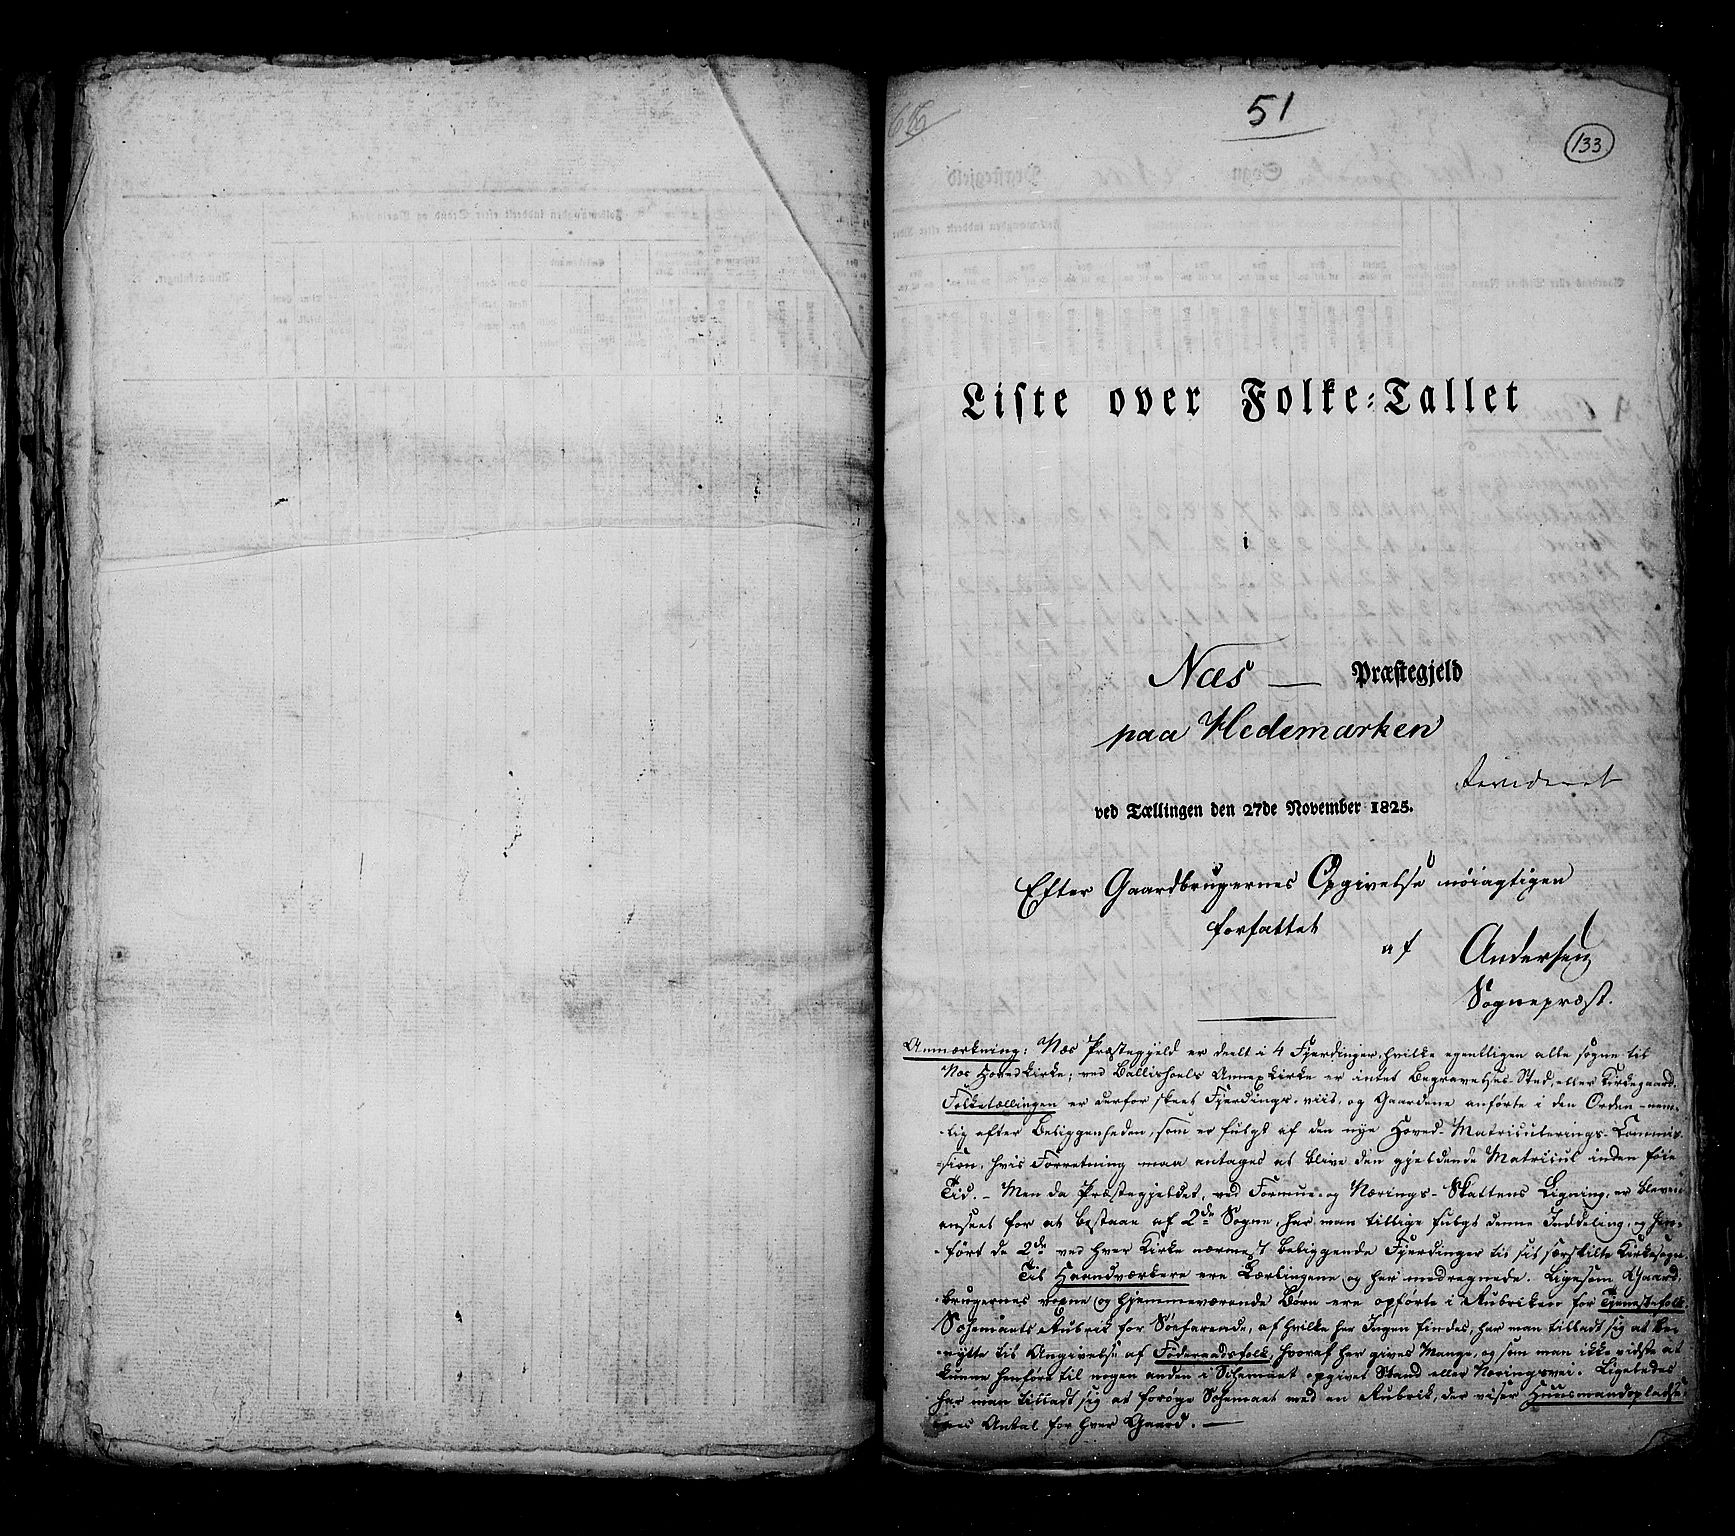 51
133
Liste over Folke-Tallet
i
Næs — Præstegjeld
paa Hedemarken
revideret
ved Tællingen den 27de November 1825.
Efter Gaardbrugernes Opgivelse nøiagtigen
forfattet
af Andersen
Sognepræst.
Anmærkning: Næs Præstegjeld er deelt i 4 Fjerdinger, hvilke egentligen alle søgne til
Næs Hovedkirke; ved Ballishoels Annexkirke er intet Begravelses-Sted, eller Kirkegaard.
Folketællingen er derfor skeet Fjerdings-viis, og Gaardene anførte i den Orden nem-
lig efter Beliggenheden, som er fulgt af den nye Hoved-Matriculerings-Commis-
sion, hvis Forretning maa antages at blive den gjeldende Matricul inden føie
Tid. - Men da Præstegjeldet, ved Formue- og Nærings-Skattens Ligning, er bleven
anseet for at bestaae af 2de Sogne, har man tillige fulgt denne Inddeling, og hen-
ført de 2de ved hver Kirke nærmest beliggende Fjerdinger til sit særskilte Kirkesogn.
Til Haandværkere ere Lærlingene og her medregnede. Ligesom Gaard-
brugernes voxne og hjemmeværende Børn ere opførte i Rubriken for Tjenestefolk.
Schemaets Rubrik for Søefarende, af hvilke her Ingen findes, har man tilladt sig at be-
nytte til Angivelse af Føderaadsfolk, hvoraf her gives Mange, og som man ikke vidste at
kunne henføre til nogen anden i Schemaet opgivet Stand eller Næringsvei. Ligeledes
har man tilladt sig at forøge Schemaet med en Rubrik, der viser Huusmandspladse-
nes Antal for hver Gaard. —